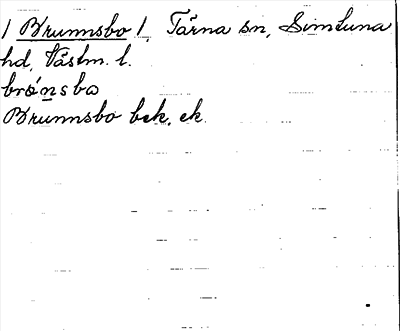 / Brunnsbo /, Tärna sn, Simtuna
hd, Västm. l.
brǿnsbo
Brunnsbo bek. ek.